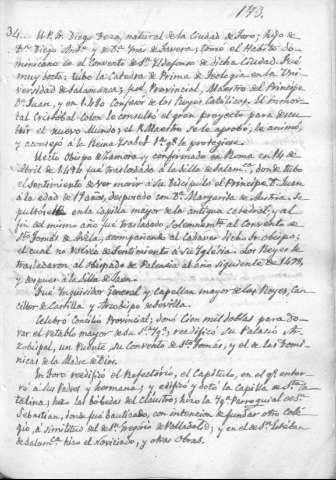 173.
34... U.P. D. Diego Deza, natural de la Ciudad de Toro; hijo de
D.n Diego y de D.a Ynés de Tavera; tomó el Habito Do-
minicano en el Convento de S.n Ildefonso de dicha Ciudad. Fué
muy docto; tubo la Catedra de Prima de Teologia en la Uni-
versidad de Salamanca; fué Provincial, Maestro del Principe
D.n Juan, y en 1480 Confesor de los Reyes Catolicos. El inmor-
tal Cristobal Colon le consultó el gran proyecto para descu-
brir el nuevo Mundo; el R. Maestro se lo aprobó, le animó,
y aconsejó a la Reina Ysabel 1.a q.e le protegiese.
Obispo de Zamora y confirmado en Roma en 14 de
Abril de 1494 fué trasladado a la silla de Salam.ca, donde tubo
el sentimiento de ver morir a su Discipulo el Principe D. Juan
a la edad de 19 años, desposado con D.a Margarita de Austria. Se
en la capilla mayor de la antigua catedral; y al
fin del mismo año fué trasladado solemnem.te al Convento de
S.to Tomás de Avila, acompañando al Cadaver N.tro Obispo;
el cual no volvió de sentimiento a su Yglesia. Los Reyes le
trasladaron al Obispado de Palencia el año siguiente de 1498,
y despues a la Silla de Jaen.
Fué Ynquisidor General y Capellan mayor de los Reyes, Can-
ciller de Castilla y Arzobispo de Sevilla.
Celebró Concilio Provincial; donó cien mil doblas para do-
rar el retablo mayor de su Yg.a; reedificó su Palacio Ar-
zobispal, un Puente, su Convento de S.to Tomás, y el de las Domi-
nicas de la Madre de Dios.
En Toro reedificó el Refectorio, el Capitulo, en el q.e enter-
ró a sus Padres y hermana; y edificó y dotó la Capilla de S.ta Ca-
talina; hizo las bóbedas del claustro; hizo la Yg.a Parroquial de S.n
Sebastian, donde fué bautizado, con intencion de fundar otro Cole-
gio, a similitud del de S.n Gregorio de Valladolid; y en el de S.n Esteban
de Salam.ca hizo el Noviciado, y otras Obras.